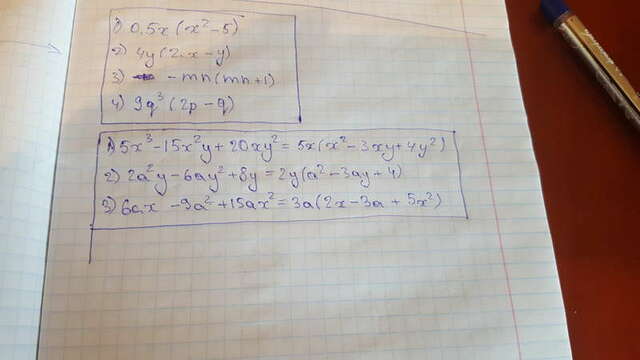 1) 0,5x(x²-5)
2) 4y(2x-y)
3) -mn(mn+1)
4) 9q³(2p-q)
1) 5x³-15x²y+20xy²=5x(x²-3xy+4y²)
2) 2a²y-6ay²+8y=2y(a²-3ay+4)
3) 6ax-9a²+15ax²=3a(2x-3a+5x²)